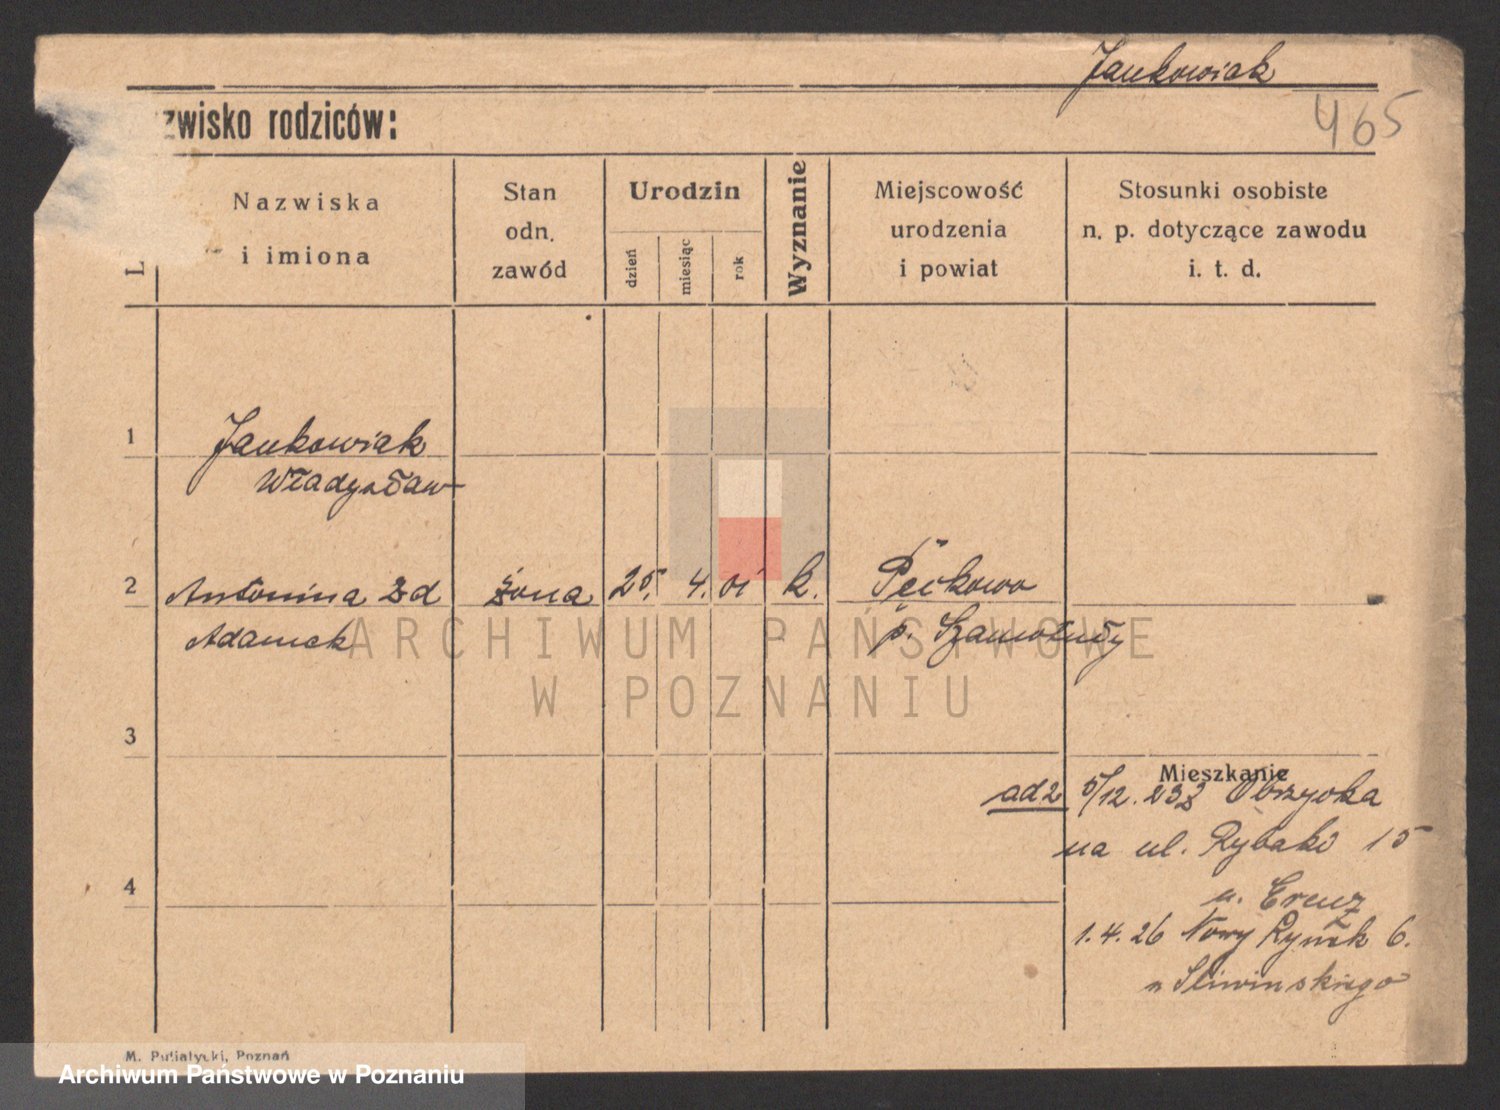 Jankowiak
465
zwisko rodziców:
L
Nazwiska
i imiona
Stan
odn.
zawód
Urodzin
dzień
miesiąc
rok
Wyznanie
Miejscowość
urodzenia
i powiat
Stosunki osobiste
n. p. dotyczące zawodu
i. t. d.
1
Jankowiak
Władysław
2
Antonina zd
żona
25.
4.
01
k.
Pęckowo
Adamek
p. Szamotuły
ARCHIWUM PAŃSTWOWE
W POZNANIU
3
Mieszkanie
ad2 5/12. 23 z Obrzycka
na ul. Rybaki 15
u. Creuz
4
1.4.26 Nowy Rynek 6.
u Sliwinskiego
M. Putiatycki, Poznań
Archiwum Państwowe w Poznaniu